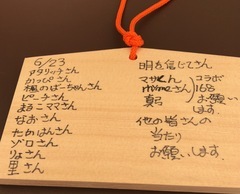 6/23
アタリッチさん
かっぴさん
楓のばーちゃんさん
ピーチさん
まるこママさん
なおさん
たかはんさん
ゾロさん
りょさん
里さん
明を信じてさん
マサくん
真弓
コラボ
168
お願い
します
他の皆さんの
当たり
お願いします.